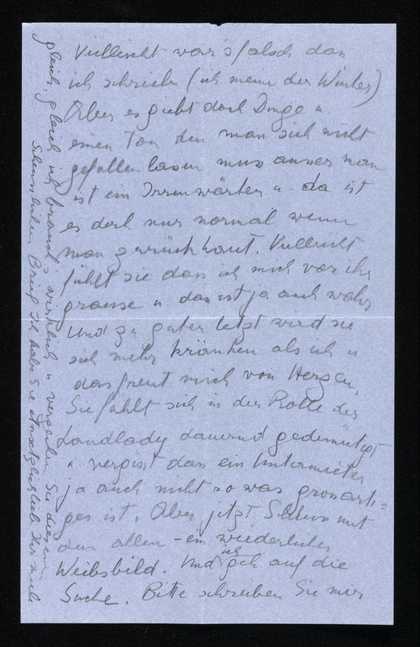 Vielleicht war's falsch dass
ich schrieb (ich meine der Winter)
Aber es giebt doch Dinge u.
einen Ton den man sich nicht
gefallen lassen muss ausser man
ist ein Irrenwärter u. da ist
es doch nur normal wenn
man zurückhaut. Vielleicht
fühlt sie dass ich mich vor ihr
grause u das ist ja auch wahr
Und zu guter letzt wird sie
sich mehr kränken als ich u
das freut mich von Herzen,
Sie fühlt sich in der Rolle der
Landlady dauernd gedemütigt
u vergisst dass ein Untermieter
ja auch nicht so was grossarti-
ges ist. Aber jetzt Schluss mit
dem allen - ein wiederliches
Weibsbild. Und ich geh auf die
Suche. Bitte schreiben Sie mir
gleich, gleich ich brauch's wirklich u verzeihen Sie diesen
Brief Ich habe Sie Ihr